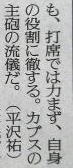 も、打席では力まず、自身
の役割に徹する。カブスの
主砲の流儀だ。（平沢祐）